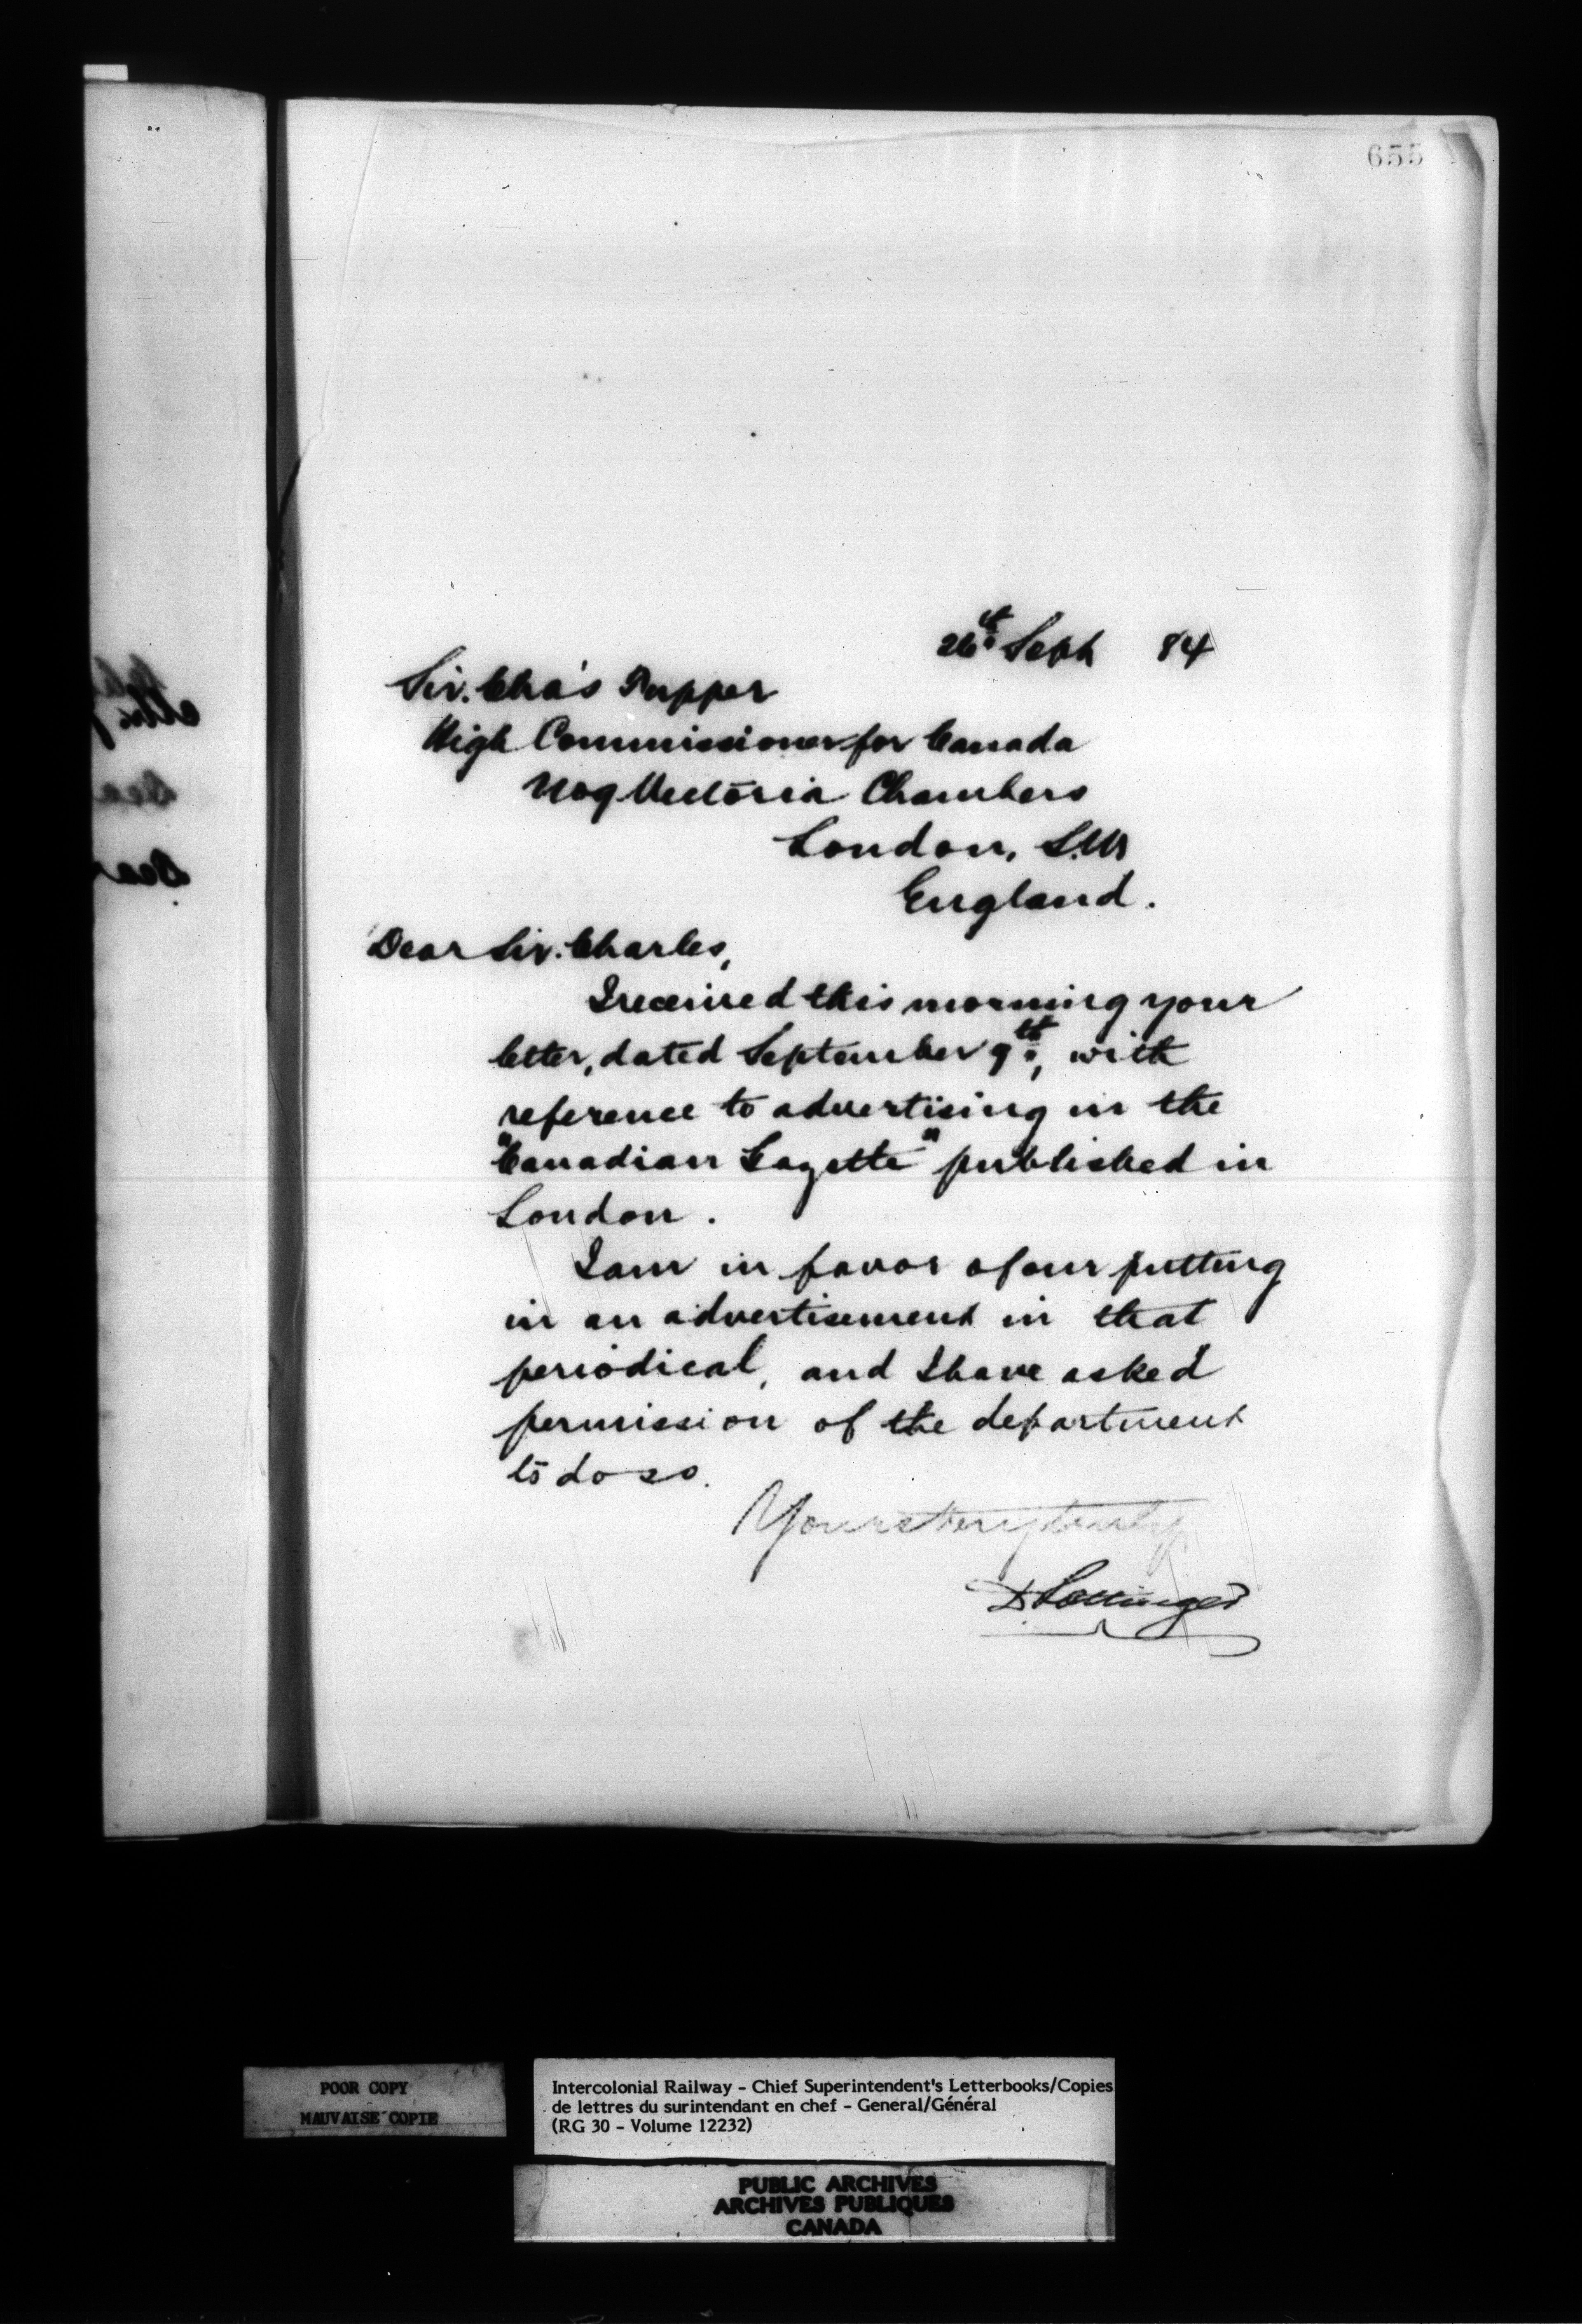 655
26th Sept 84
Sir. Cha's Tupper
High Commissioner for Canada
No 9 Victoria Chambers
London, S.W
England.
Dear Sir. Charles,
I received this morning your
letter, dated September 9th, with
reference to advertising in the
"Canadian Gazette" published in
London.
I am in favor of our putting
in an advertisement in that
periodical, and I have asked
permission of the department
to do so.
Yours very truly
D Pottinger
POOR COPY
MAUVAISE COPIE
Intercolonial Railway - Chief Superintendent's Letterbooks/Copies
de lettres du surintendant en chef - General/Général
(RG 30 - Volume 12232)
PUBLIC ARCHIVES
ARCHIVES PUBLIQUES
CANADA